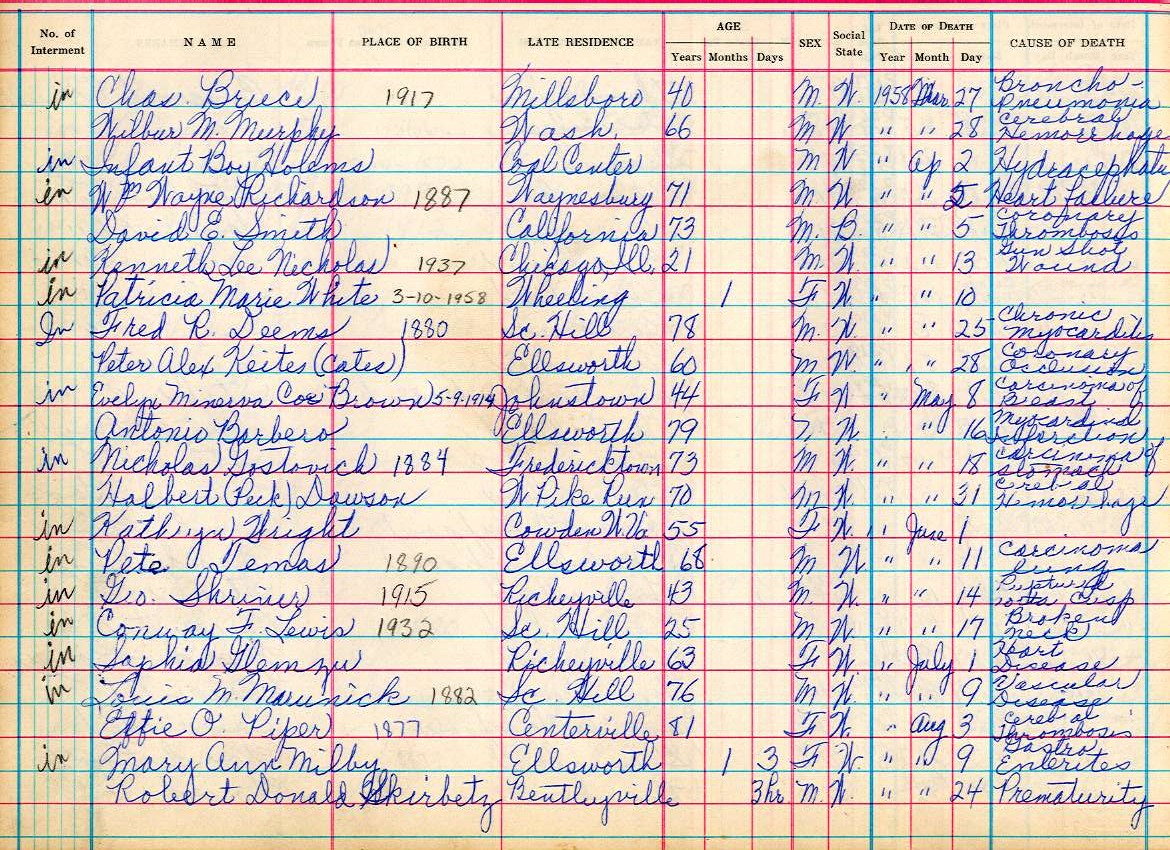 No. of Interment NAME PLACE OF BIRTH LATE RESIDENCE AGE Years Months Days SEX Social State DATE OF DEATH Year Month Day CAUSE OF DEATH
in Chas. Bryce 1917 Millsboro 40 M. W. 1958 Mar. 27 Broncho-Pneumonia
Wilbur M. Murphy Wash. 66 M W " " 28 Cerebral Hemorrhage
in Infant Boy Holems Coal Center M W " Ap 2 Hydracephalu
in Wm Wayne Richardson 1887 Waynesburg 71 M W. " " 5 Heart failure
David E. Smith California 73 M. B. " " 5 Coronary Thrombosis
in Kenneth Lee Necholas 1937 Chicago Ill. 21 M. W. " " 13 Gun Shot Wound
in Patricia Marie White 3-10-1958 Wheeling 1 F W. " " 10
In Fred R. Deems 1880 Sc. Hill 78 M. W. " " 25 Chronic myocarditis
Peter Alex Keites (Cates) Ellsworth 60 M W. " " 28 Coronary Occlusion
in Evelyn Minerva Coe Brown 5-9-1914 Johnstown 44 F W " May 8 Carcinoma of Breast
Antonio Barbero Ellsworth 79 W. " 16 Myocardial Infarction
in Nicholas Gostovich 1884 Fredericktown 73 M W. " " 18 Carcinoma of stomach
Halbert (Peck) Dawson W Pike Run 70 M W. " " 31 Cerebal Hemorhage
in Kathryn Wright Cowden W. Va. 55 F W. " June 1
in Pete Temas 1890 Ellsworth 68 M W " " 11 Carcinoma lung
in Geo. Shriner 1915 Richeyville 43 M. W. " " 14 Ruptured Cusp
in Conway F. Lewis 1932 Sc. Hill 25 M W. " " 17 Broken neck
in Sophia Richeyville 63 F W. " July 1 Heart Disease
in Louis M. Marunick 1882 Sc. Hill 76 M W. " " 9 Vascular Disease
Effie O. Piper 1877 Centerville 81 F W. " Aug 3 Cerebal Thrombosis
in Mary Ann Milby Ellsworth 1 3 F W. " " 9 Gastro Enterites
Robert Donald Skirbetz Bentleyville 3 hr. M. W. " " 24 Prematurity